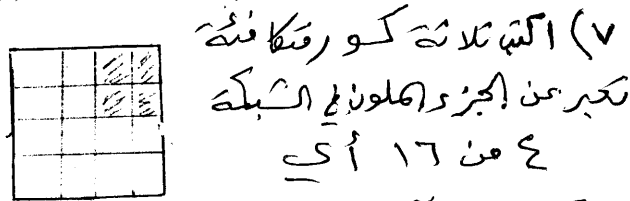 ٧) اكتب ثلاثة كسور متكافئة
تعبر عن الجزء الملون في الشبكة
٤ من ١٦ أي